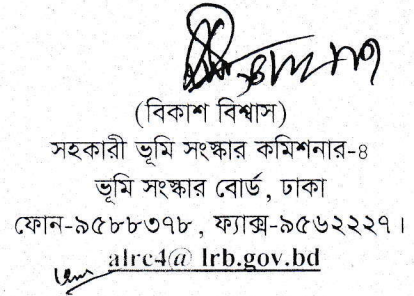 (বিকাশ বিশ্বাস)
সহকারী ভূমি সংস্কার কমিশনার-৪
ভূমি সংস্কার বোর্ড, ঢাকা
ফোন-৯৫৮৮৩৭৮, ফ্যাক্স-৯৫৬২২২৭।
alrc4@ lrb.gov.bd